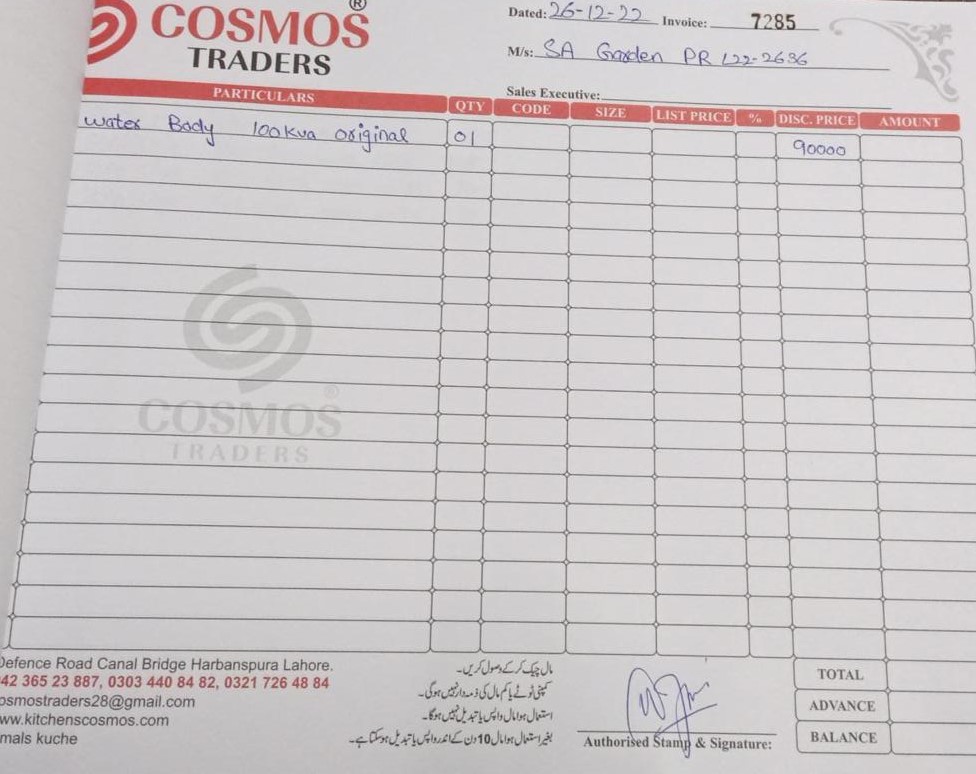 COSMOS ®
TRADERS
Dated: 26-12-22 Invoice: 7285
M/s: SA Garden PR 122-2636
Sales Executive:
PARTICULARS QTY CODE SIZE LIST PRICE % DISC. PRICE AMOUNT
water Body 100kva original 01 90000
COSMOS ®
TRADERS
Defence Road Canal Bridge Harbanspura Lahore.
42 365 23 887, 0303 440 84 82, 0321 726 48 84
osmostraders28@gmail.com
ww.kitchenscosmos.com
mals kuche
مال چیک کر کے وصول کریں۔
کمپنی ٹوٹے یا کم مال کی ذمہ دار نہیں ہوگی۔
استعمال ہوا مال واپس یا تبدیل نہیں ہوگا۔
بغیر استعمال ہوا مال 10 دن کے اندر واپس یا تبدیل ہوسکتا ہے۔
Authorised Stamp & Signature:
TOTAL
ADVANCE
BALANCE